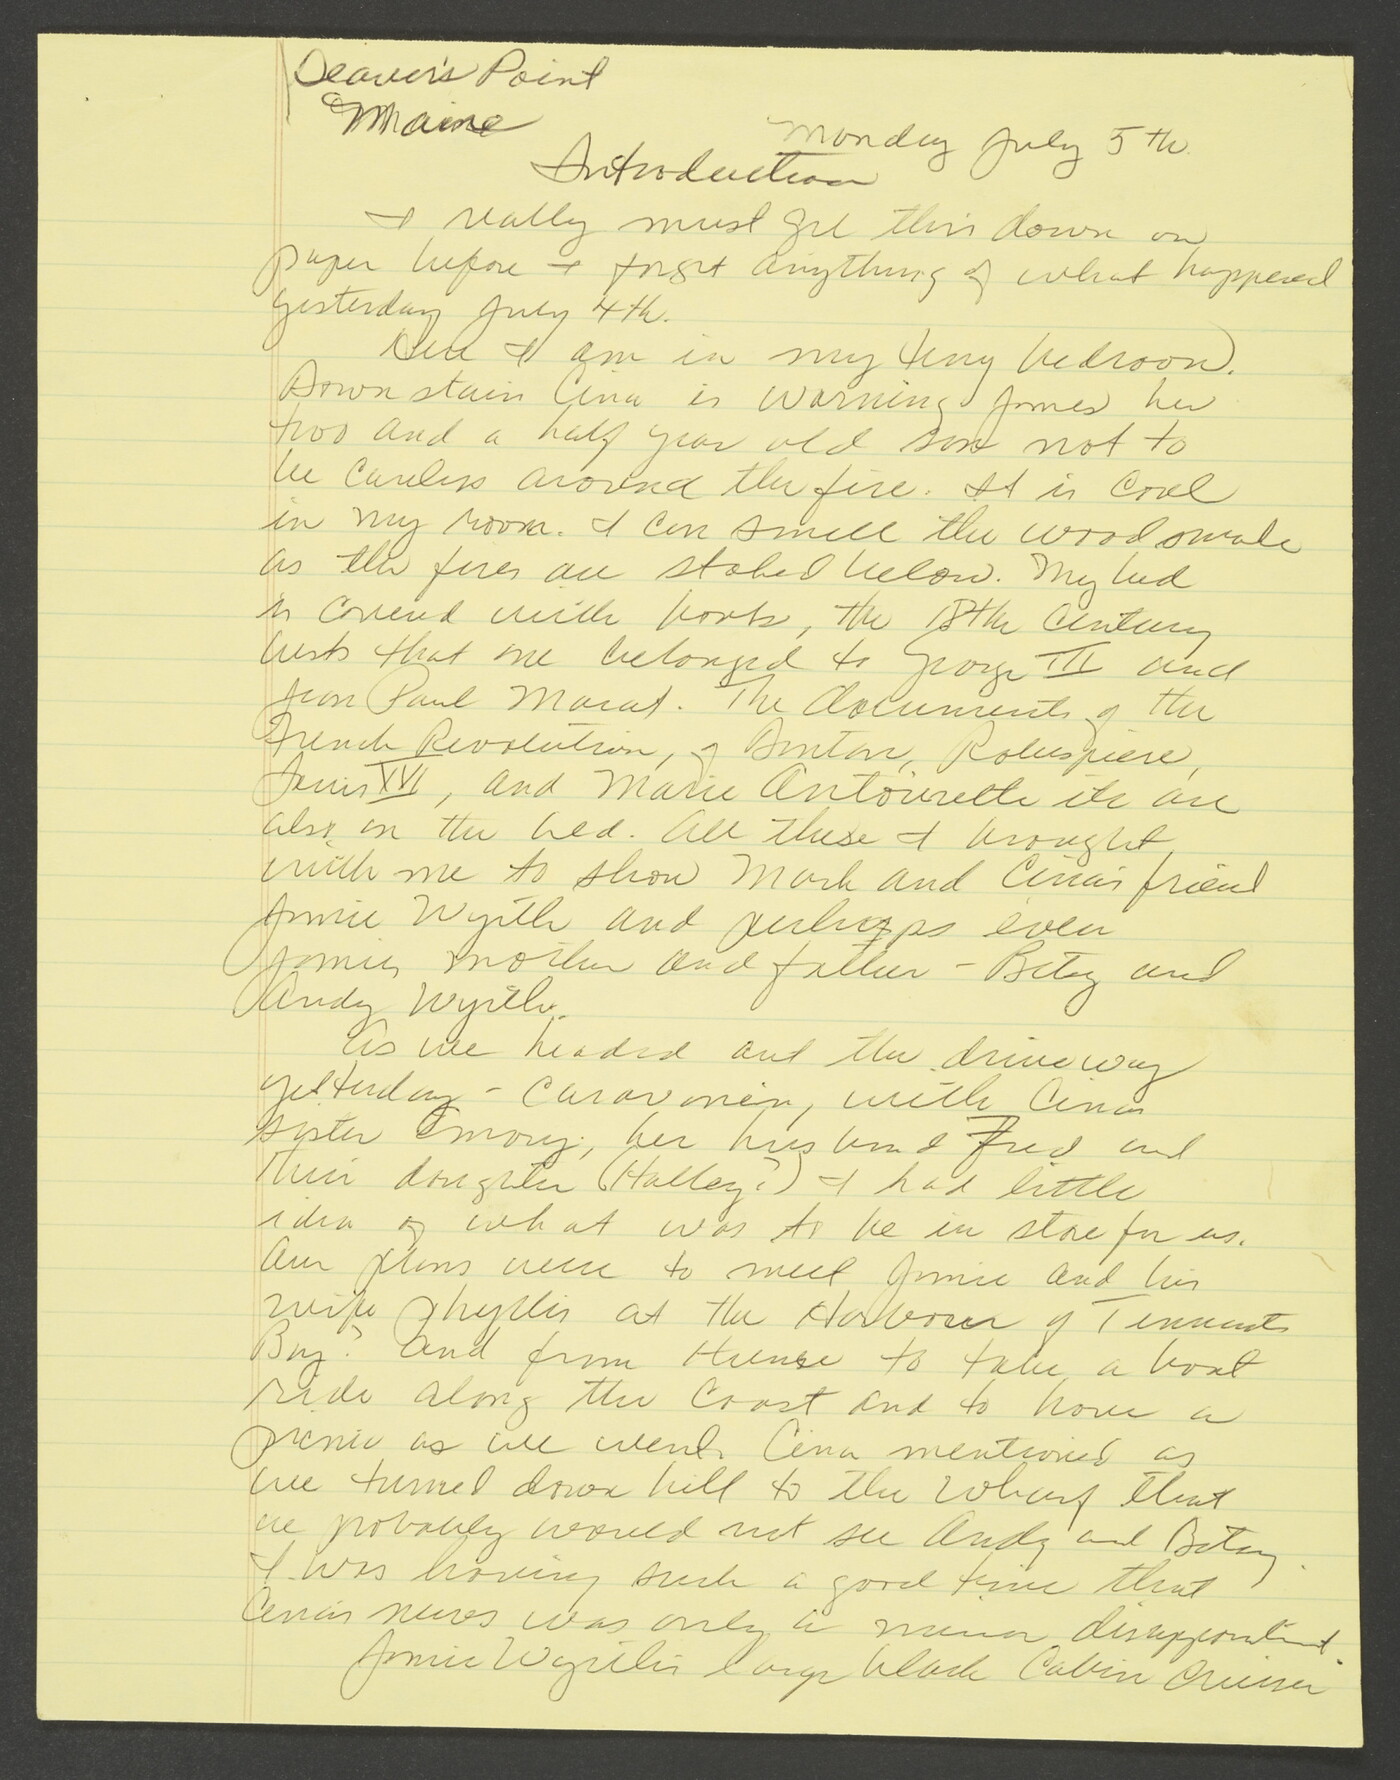 Deaver's Point
Maine
Monday July 5th
Introduction
I really must get this down on
paper before I forget anything of what happened
yesterday July 4th.
Here I am in my tiny bedroom.
Downstairs Cina is warning James her
two and a half year old son not to
be careless around the fire. It is cool
in my room. I can smell the woodsmoke
as the fires are stoked below. My bed
is covered with books, the 18th Century
that one belonged to George III and
Jean Paul Marat. The documents of the
French Revolution, of Danton, Robespiere,
Louis XVI, and Marie Antoinette etc are
also on the bed. All these I brought
with me to show Mark and Cina's friend
Jamie Wyeth and perhaps even
Jamies mother and father - Betsy and
Andy Wyeth.
As we headed out the driveway
yesterday - with Cinas
sister Emory, her husband Fred and
their daughter (Halley?) I had little
idea of what was to be in store for us.
Our plans were to meet Jamie and his
wife Phyllis at the Harbour of Tennants
Bay? and from thense to take a boat
ride along the Coast and to have a
picnic as we went. Cina mentioned as
we turned down hill to the Wharf that
we probably would not see Andy and Betsy.
I was having such a good time that
Cina's news was only a minor disappointment.
Jamie Wyeth's large black Cabin Cruiser